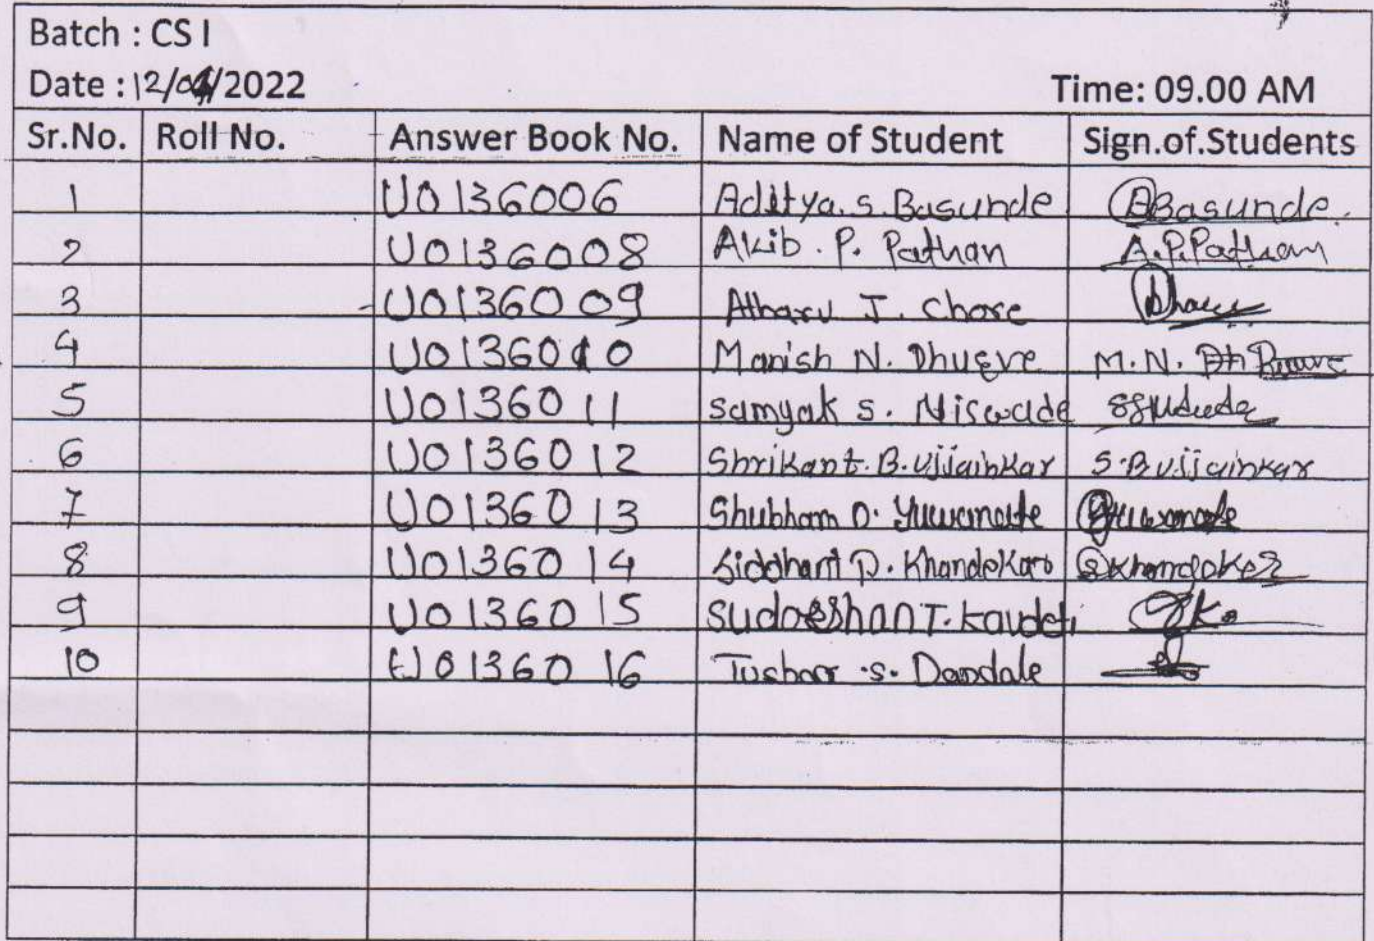 Batch : CS I
Date : 12/04/2022 Time: 09.00 AM
Sr.No. Roll No. Answer Book No. Name of Student Sign.of.Students
1 U0136006 Aditya. S. Basunde ABasunde.
2 U0136008 Akib. P. Pathan A.P.Pathan
3 U0136009 Atharv J. Chore
4 U0136010 Manish N. Dhugve M.N.
5 U0136011 Samyak S. Niswade
6 U0136012 Shrikant. B. Ujjainkar S.B Ujjainkar
7 U0136013 Shubham D. Yuwanate
8 U0136014 Siddhant D. Khandekar SKhandekar
9 U0136015 Sudarshan T.
10 U0136016 Tushar .S. Dandale